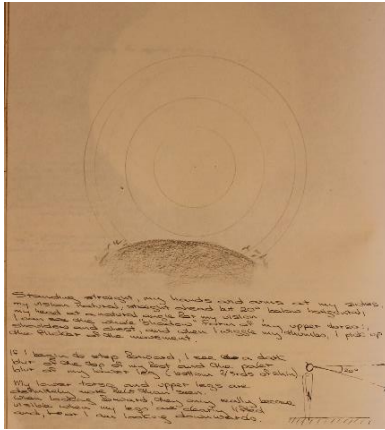 Standing straight, my hands and arms at my sides,
my vision natural, straight ahead but 20° below horizontal,
my head at a natural angle for my vision,
I can see the vague "shadow" form of my upper torso:
shoulders and chest, and when I wiggle my thumbs, I pick up
the flicker of the movement.
If I begin to step forward, I see a dark
blur of the top of my foot and the paler
blur of my lower leg
My lower torso and upper legs are
definitely not seen.
When looking forward, they only really become
visible when my legs are clearly lifted
and, least, I am looking downwards.
20°